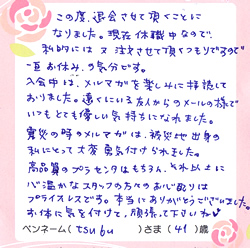 この度、退会させて頂くことに
なりました。現在休職中なので、
私的には又注文させて頂くつもりですので
一旦お休みの気分です。
入会中は、メルマガを楽しみに拝読して
おりました。遠くにいる友人からのメールの様で
いつもとても優しい気持ちになれました。
震災の時のメルマガは、被災地出身の
私にとって大変勇気付けられました。
高品質のプラセンタはもちろん、それ以上に
心温かなスタッフの方々のお心配りは
プライスレスです。本当にありがとうございました。
お体に気を付けて、頑張って下さいね♥
ペンネーム(tsubu)さま(41)歳